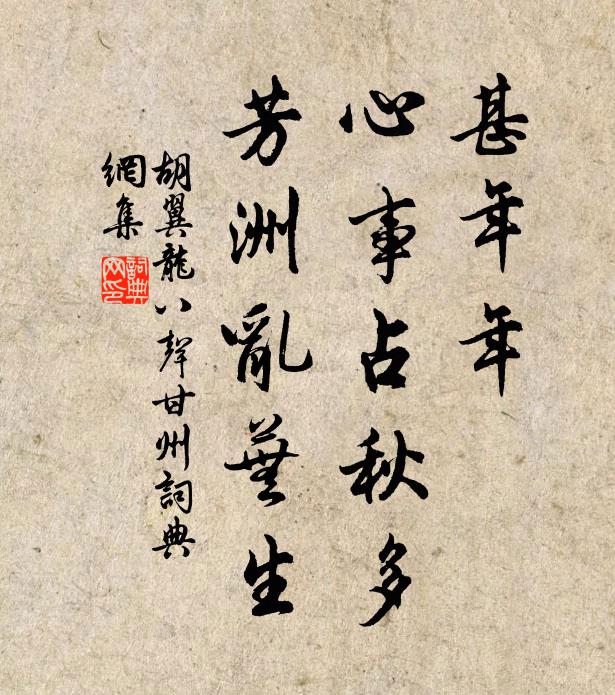 甚年年
心事占秋多
芳洲亂蕪生
胡翼龍八聲甘州詞典
網集
詞典
网印